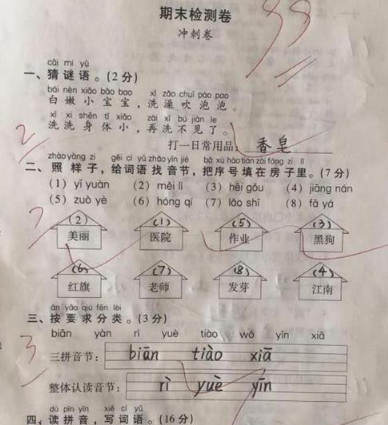 期末检测卷
99
冲刺卷
cāi mí yǔ
一、猜谜语。(2分)
bái nèn xiǎo bǎo bao xǐ zǎo chuī pào pao
白嫩小宝宝,洗澡吹泡泡,
xǐ xǐ shēn tǐ xiǎo zài xǐ bú jiàn le
洗洗身体小,再洗不见了。
2
打一日常用品: 香皂
zhào yàng zi gěi cí yǔ zhǎo yīn jié bǎ xù hào tián zài fáng zi lǐ
二、照样子,给词语找音节,把序号填在房子里。(7分)
(1) yī yuàn (2) měi lì (3) hēi gǒu (4) jiāng nán
(5) zuò yè (6) hóng qí (7) lǎo shī (8) fā yá
7
(2) (1) (5) (3)
美丽 医院 作业 黑狗
(6) (7) (8) (4)
红旗 老师 发芽 江南
àn yāo qiú fēn lèi
三、按要求分类。(3分)
biān yàn rì yuè tiào wǒ yín xiā
3
三拼音节: biān tiào xiā
整体认读音节: rì yuè yín
dú pīn yīn xiě cí yǔ
四、读拼音,写词语。(16分)